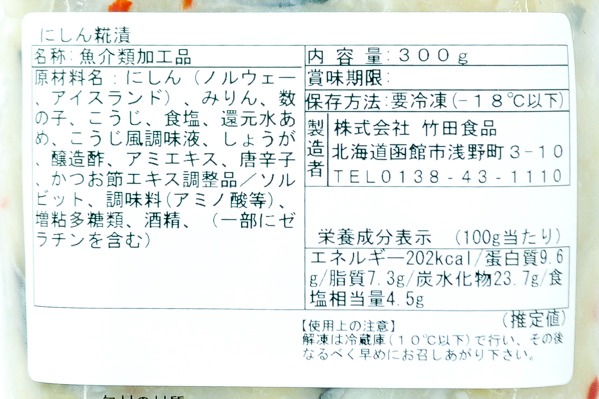 にしん糀漬
名称:魚介類加工品
原材料名:にしん(ノルウェー
、アイスランド)、みりん、数
の子、こうじ、食塩、還元水あ
め、こうじ風調味液、しょうが
、醸造酢、アミエキス、唐辛子
、かつお節エキス調整品/ソル
ビット、調味料(アミノ酸等)、
増粘多糖類、酒精、(一部にゼ
ラチンを含む)
内容量:300g
賞味期限:
保存方法:要冷凍(-18℃以下)
製造者
株式会社 竹田食品
北海道函館市浅野町3-10
TEL0138-43-1110
栄養成分表示 (100g当たり)
エネルギー202kcal/蛋白質9.6
g/脂質7.3g/炭水化物23.7g/食
塩相当量4.5g
(推定値)
【使用上の注意】
解凍は冷蔵庫(10℃以下)で行い、その後
なるべく早めにお召しあがり下さい。